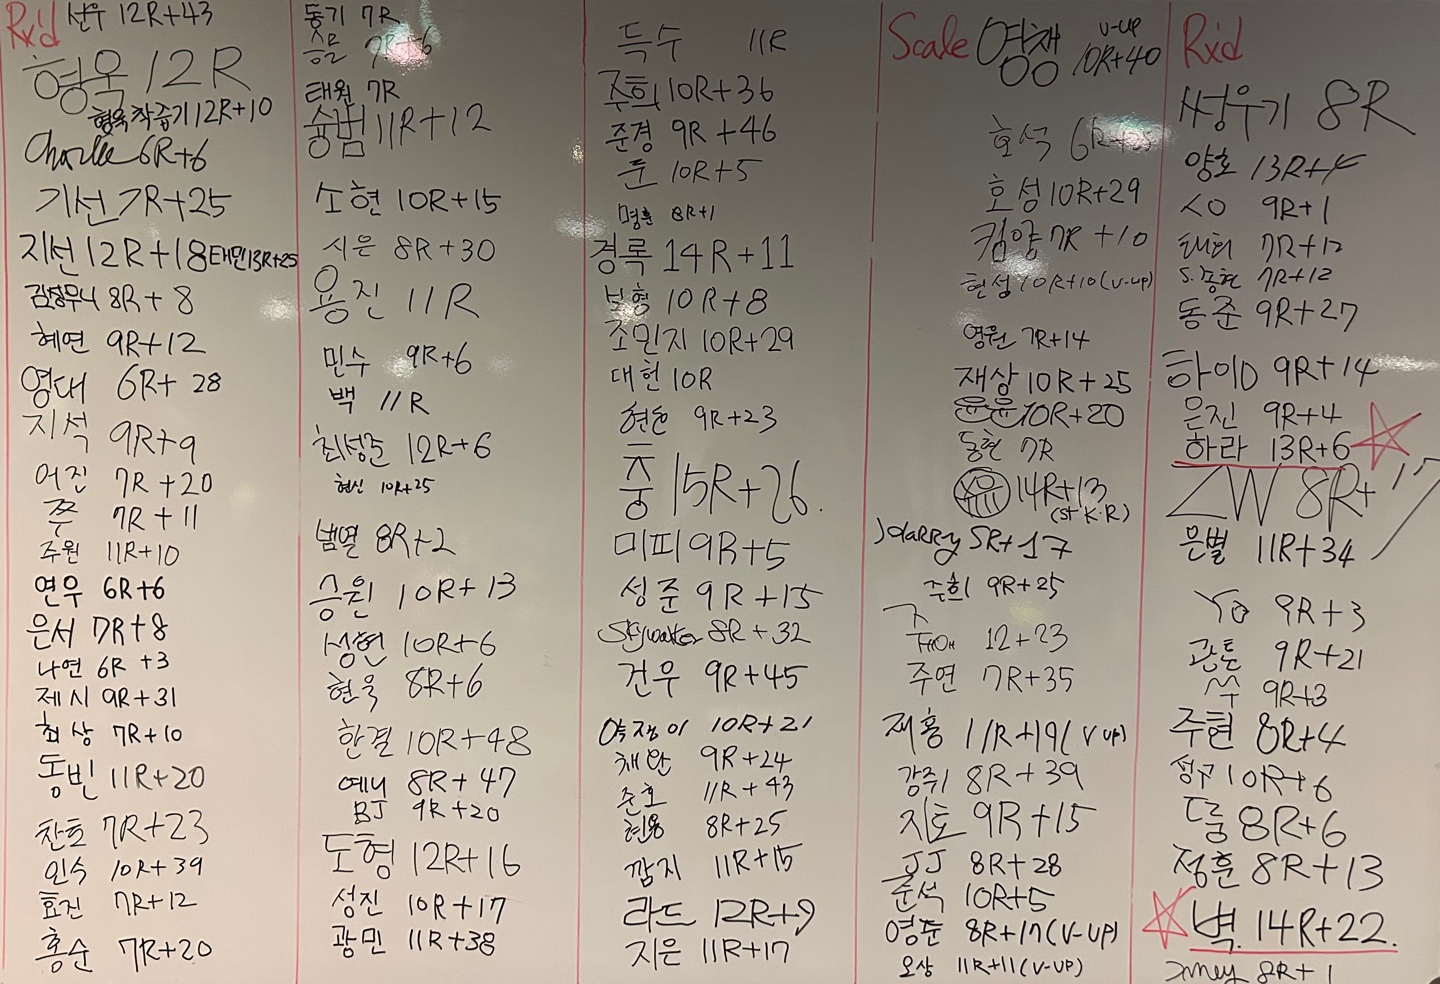 Rx'd 선우 12R+43
형욱 12R
형욱 착즙기 12R+10
Charlie 6R+6
기선 7R+25
지선 12R+18 태민 13R+25
김정무니 8R+8
혜연 9R+12
영대 6R+28
지석 9R+9
어진 7R+20
쭌 7R+11
주원 11R+10
연우 6R+6
은서 7R+8
나연 6R+3
제시 9R+31
최상 7R+10
동빈 11R+20
찬호 7R+23
인수 10R+39
효진 7R+12
홍순 7R+20
동기 7R
7R+6
태원 7R
슝범 11R+12
소현 10R+15
시은 8R+30
용진 11R
민수 9R+6
백 11R
최성준 12R+6
현신 10R+25
범열 8R+2
승원 10R+13
성현 10R+6
현욱 8R+6
한결 10R+48
예니 8R+47
BJ 9R+20
도형 12R+16
성진 10R+17
광민 11R+38
득수 11R
주희 10R+36
준경 9R+46
준 10R+5
명훈 8R+1
경록 14R+11
보형 10R+8
조민지 10R+29
대헌 10R
현호 9R+23
중 15R+26.
미피 9R+5
성준 9R+15
8R+32
건우 9R+45
10R+21
채안 9R+24
준호 11R+43
현용 8R+25
깜지 11R+15
라드 12R+9
지은 11R+17
Scale 영쟁 V-up 10R+40
호석 6R+25
호성 10R+29
킴양 7R+10
현성 10R+10(V-up)
영원 7R+14
재상 10R+25
윤윤 10R+20
동현 7R
14R+13
(st K.R)
Jdarry 5R+17
주희 9R+25
12+23
주연 7R+35
재홍 11R+19(V up)
강쥐 8R+39
지토 9R+15
JJ 8R+28
준석 10R+5
영준 8R+17(V-up)
오상 11R+11(V-UP)
Rx'd
쌍우기 8R
양호 13R+4
9R+1
태희 7R+12
S.동현 7R+12
동준 9R+27
하이 9R+14
은진 9R+4
하라 13R+6
ZW 8R+17
은별 11R+34
Yo 9R+3
관튼 9R+21
9R+3
주현 8R+4
성구 10R+6
둠 8R+6
정훈 8R+13
벽. 14R+22.
8R+1